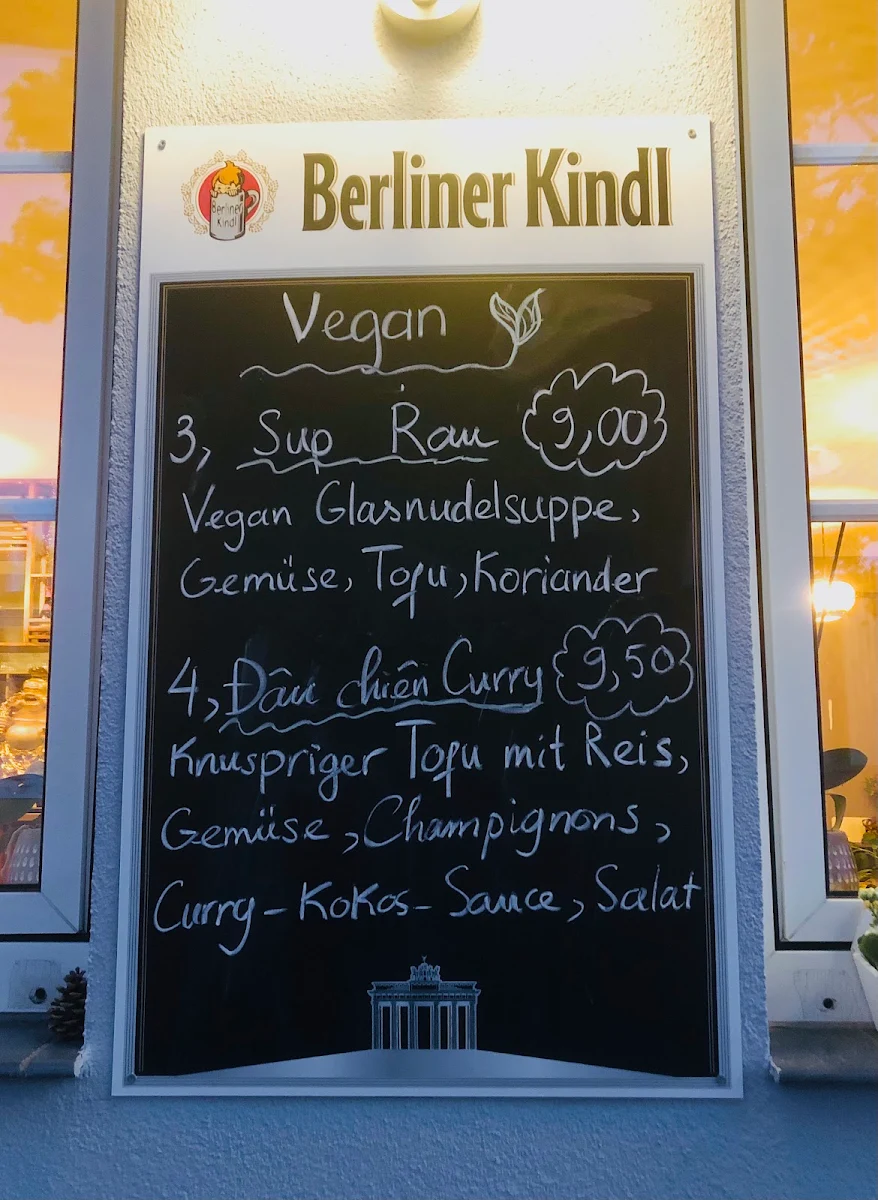 Berliner Kindl
Berliner
Kindl
Vegan
3, Sup Rau 9,00
Vegan Glasnudelsuppe,
Gemüse, Tofu, Koriander
4, Đâu chiên Curry 9,50
Knuspriger Tofu mit Reis,
Gemüse, Champignons,
Curry-Kokos-Sauce, Salat